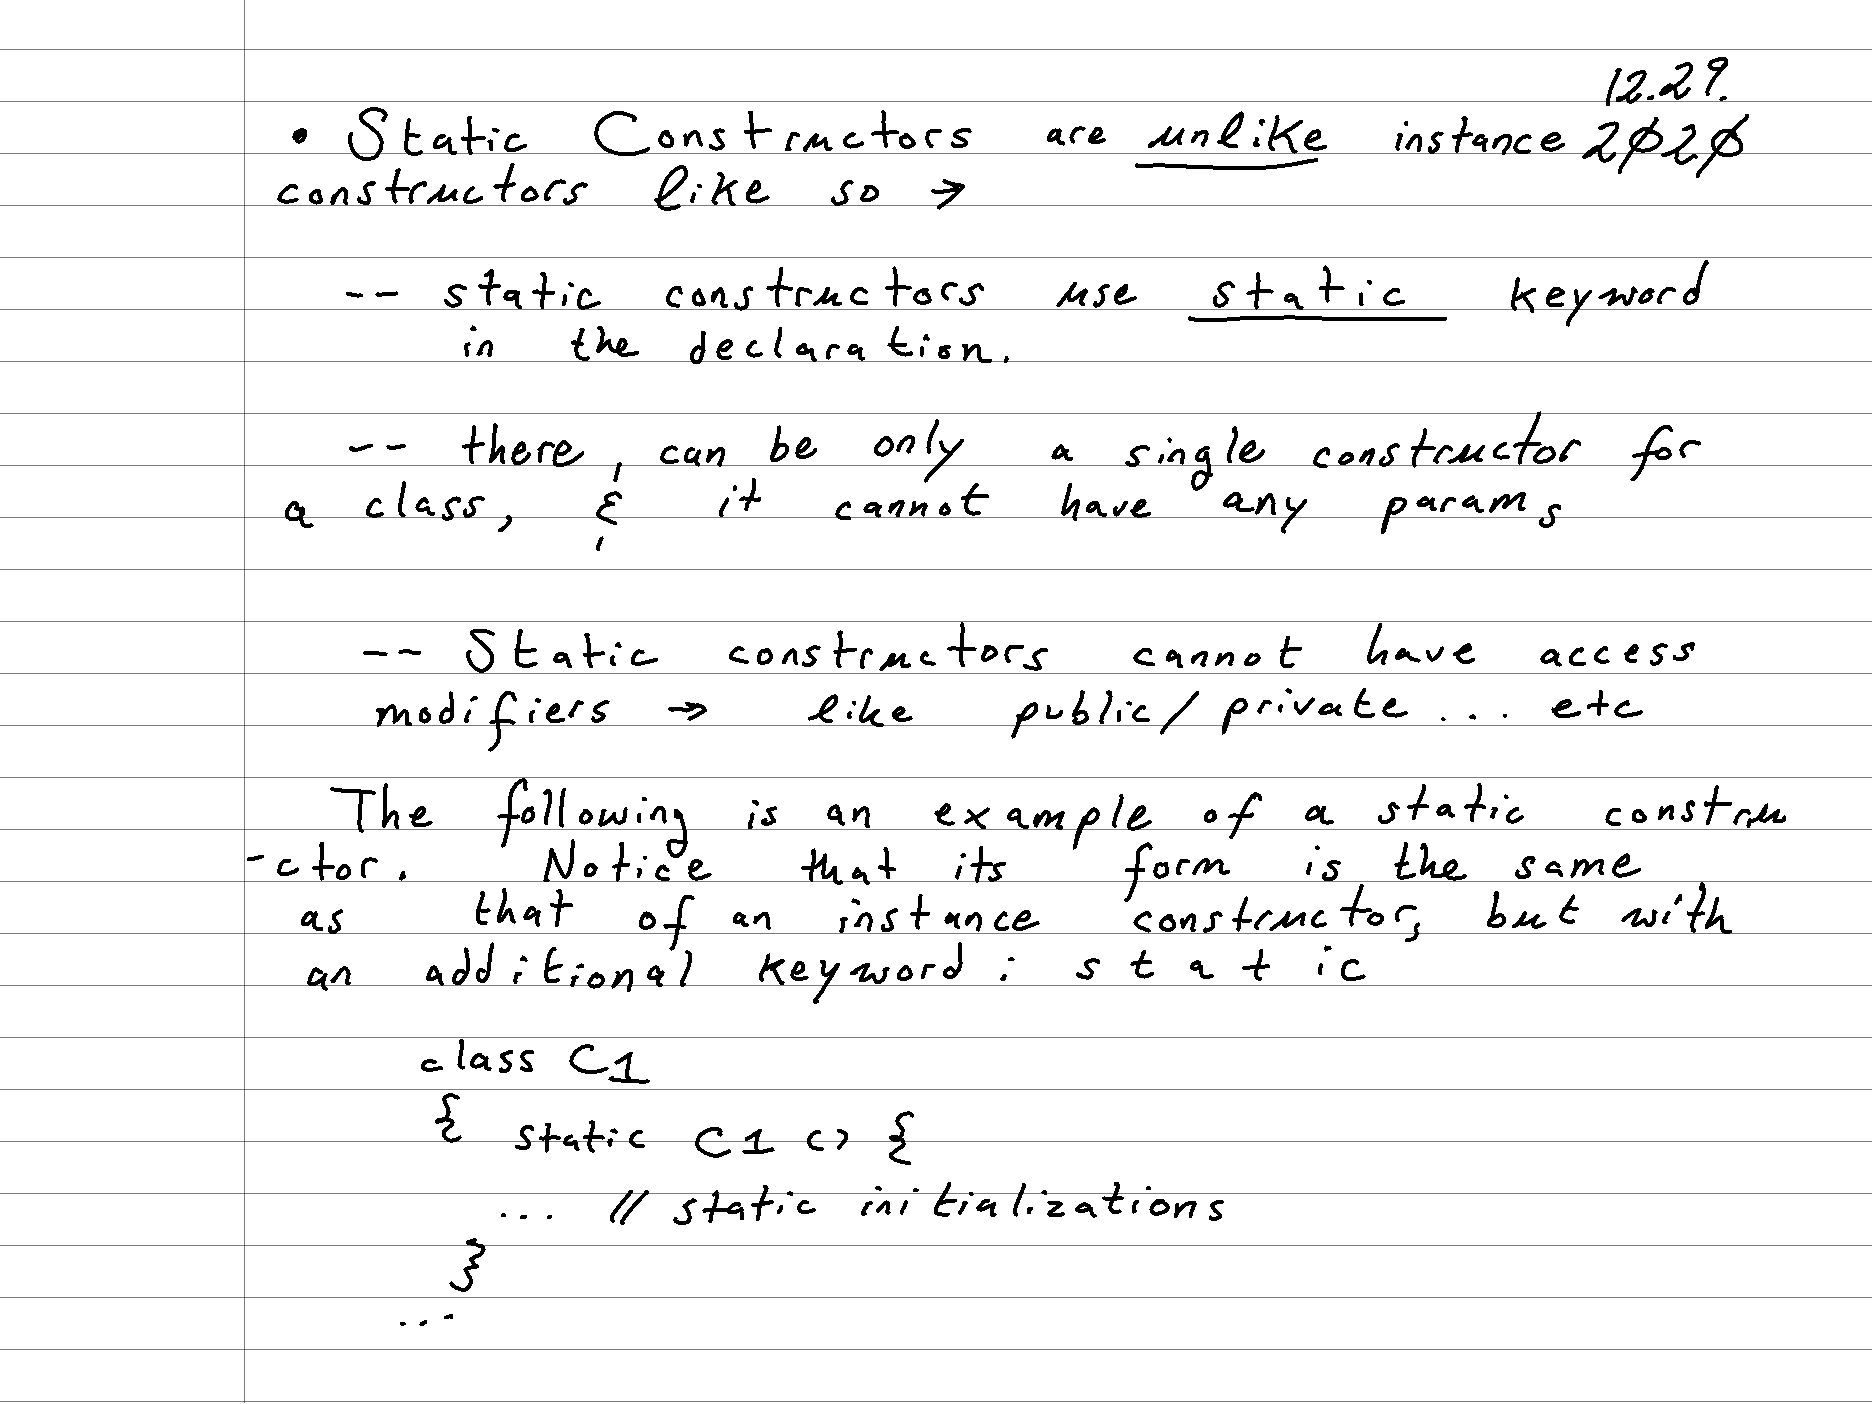 12.29.
• Static Constructors are unlike instance 2020
constructors like so →
-- static constructors use static keyword
in the declaration.
-- there, can be only a single constructor for
a class, & it cannot have any params
-- Static constructors cannot have access
modifiers → like public/private ... etc
The following is an example of a static constru
-ctor. Notice that its form is the same
as that of an instance constructor, but with
an additional keyword : static
class C1
{ static C1 () {
... // static initializations
}
...